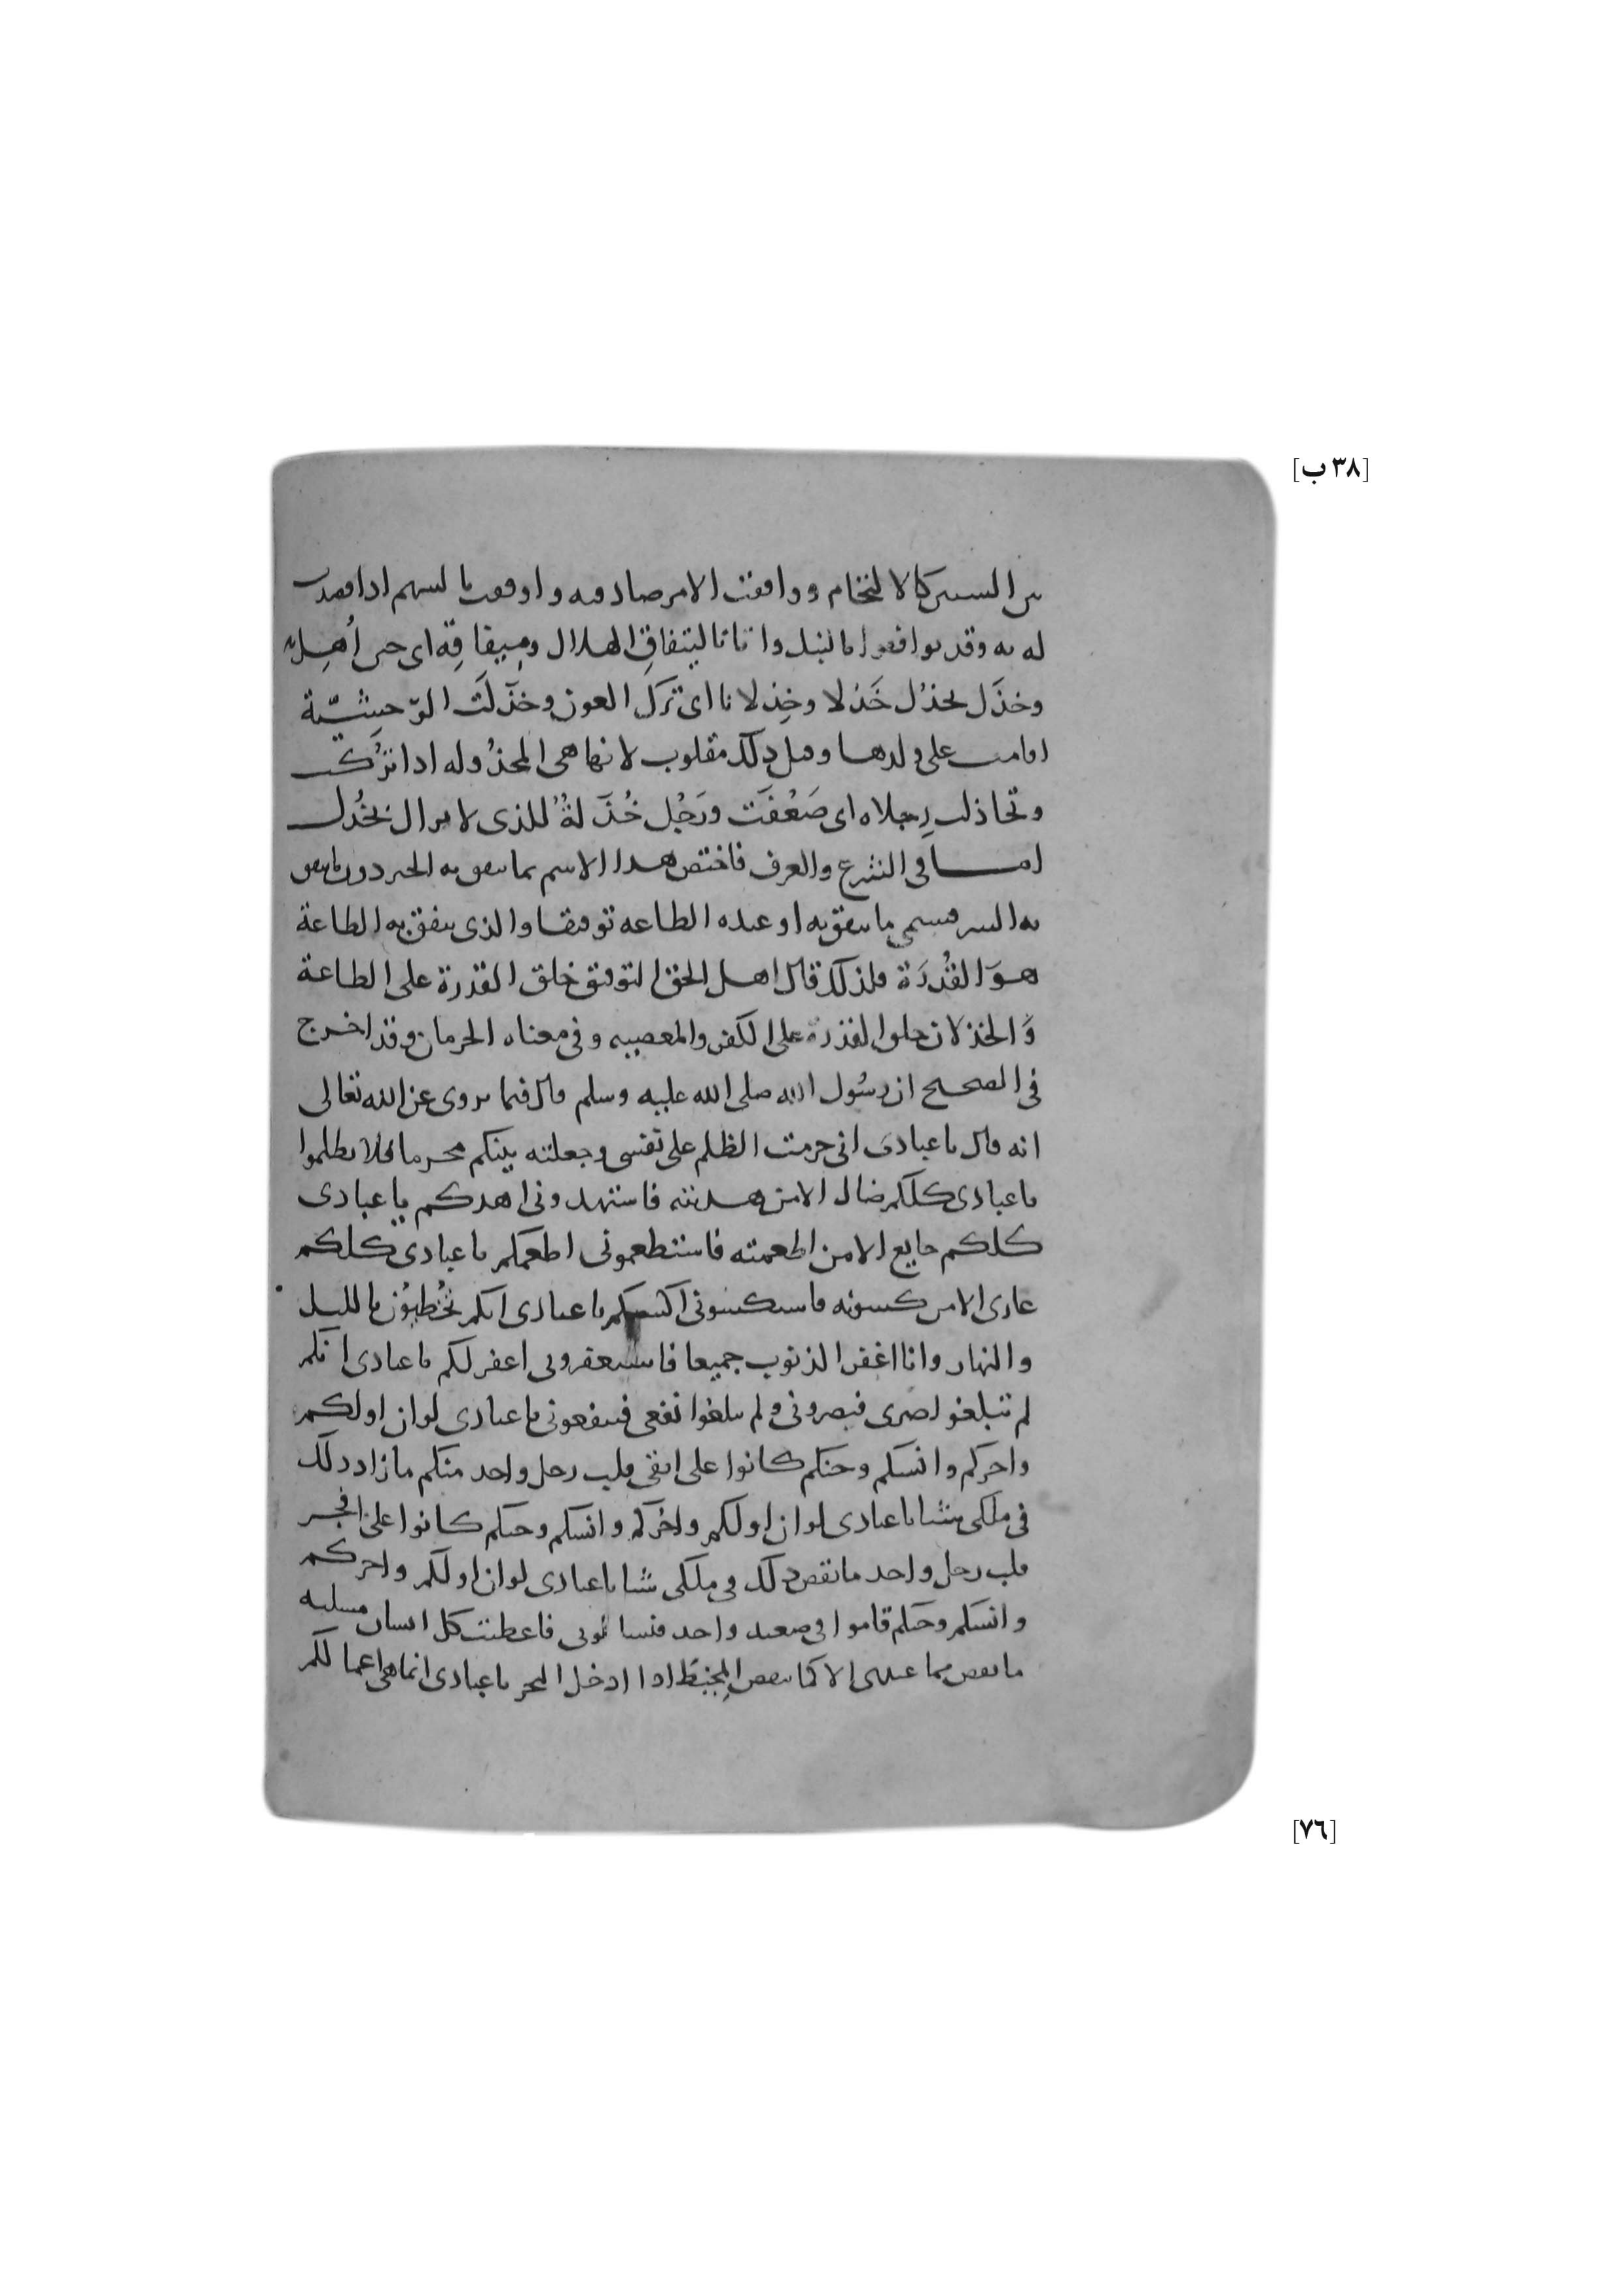 [٣٨ ب]
بين الشيئين كالالتحام ووافقت الامر صادفه واوفقت بالسهم اذا قصدت
له به وقد توافقوا بالنبل واتانا ليتفاق الهلال وميفاقه اى حين أُهِلّ
وخذَل يخذُل خَذلا وخِذلانا اى ترك العون وخذَلَت الوَحشِيّة
اقامت على ولدها وقيل ذلك مقلوب لانها هى المخذوله اذا تُركت
وتخاذلت رِجلاه اى ضَعُفَت ورَجُل خُذَلَةٌ للذى لا يزال يخذُل
امــا فى الشرع والعرف فاختص هذا الاسم بما يتفق به الخير دون ما يتفق
به الشر فسمى ما يتفق به او عنده الطاعه توفيقا والذى يتفق به الطاعة
هوَ القُدرَة فلذلك قال اهل الحق التوفيق خلق القدرة على الطاعة
وَالخذلان خلق القدرة على الكفر والمعصيه وفى معناه الحرمان وقد اخرج
فى الصحيح ان رسُول الله صلى الله عليه وسلم قال فيما يروى عن الله تعالى
انه قال يا عبادى انى حرمت الظلم على نفسى وجعلته بينكم محرما فلا تظلموا
يا عبادى كلكم ضال الا من هديته فاستهدونى اهدكم يا عبادى
كلكم جايع الا من اطعمته فاستطعمونى اطعمكم يا عبادى كلكم
عارى الا من كسوته فاستكسونى اكسيكم يا عبادى انكم تُخطِئون بالليل
والنهار وانا اغفر الذنوب جميعا فاستغفرونى اغفر لكم يا عبادى انكم
لم تبلغوا ضرى فتضرونى ولم تبلغوا نفعى فتنفعونى يا عبادى لو ان اولكم
واخركم وانسكم وجنكم كانوا على اتقى قلب رجل واحد منكم ما زاد ذلك
فى ملكى شيئا يا عبادى لو ان اولكم واخركم وانسكم وجنكم كانوا على افجر
قلب رجل واحد ما نقص ذلك فى ملكى شيئا يا عبادى لو ان اولكم واخركم
وانسكم وجنكم قاموا فى صعيد واحد فسالونى فاعطيت كل انسان مسلته
ما نقص مما عندى الا كما ينقص المِخيَط اذا ادخل البحر يا عبادى انما هى اعمالكم
[٧٦]